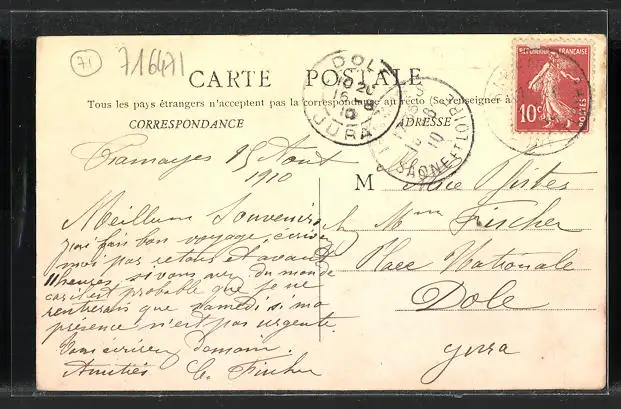 71
716471
CARTE POSTALE
Tous les pays étrangers n'acceptent pas la correspondance au recto (Se renseigner à
CORRESPONDANCE
ADRESSE
DOLE
10 20
16 8
10
JURA
SAONE ET LOIRE
10
REPUBLIQUE FRANÇAISE
10c
POSTES
Tramayes 15 Aout
1910
Meilleurs Souvenirs
j'ai fais bon voyage, écrivez
moi pas retour et avant
11 heures si vous avez du monde
car il est probable que je ne
rentrerais que samedi si ma
présence n'est pas urgente.
Vous écrirez demain.
Amitiés C. Fincher
M
Mme Fischer
Place Nationale
Dole
Jura